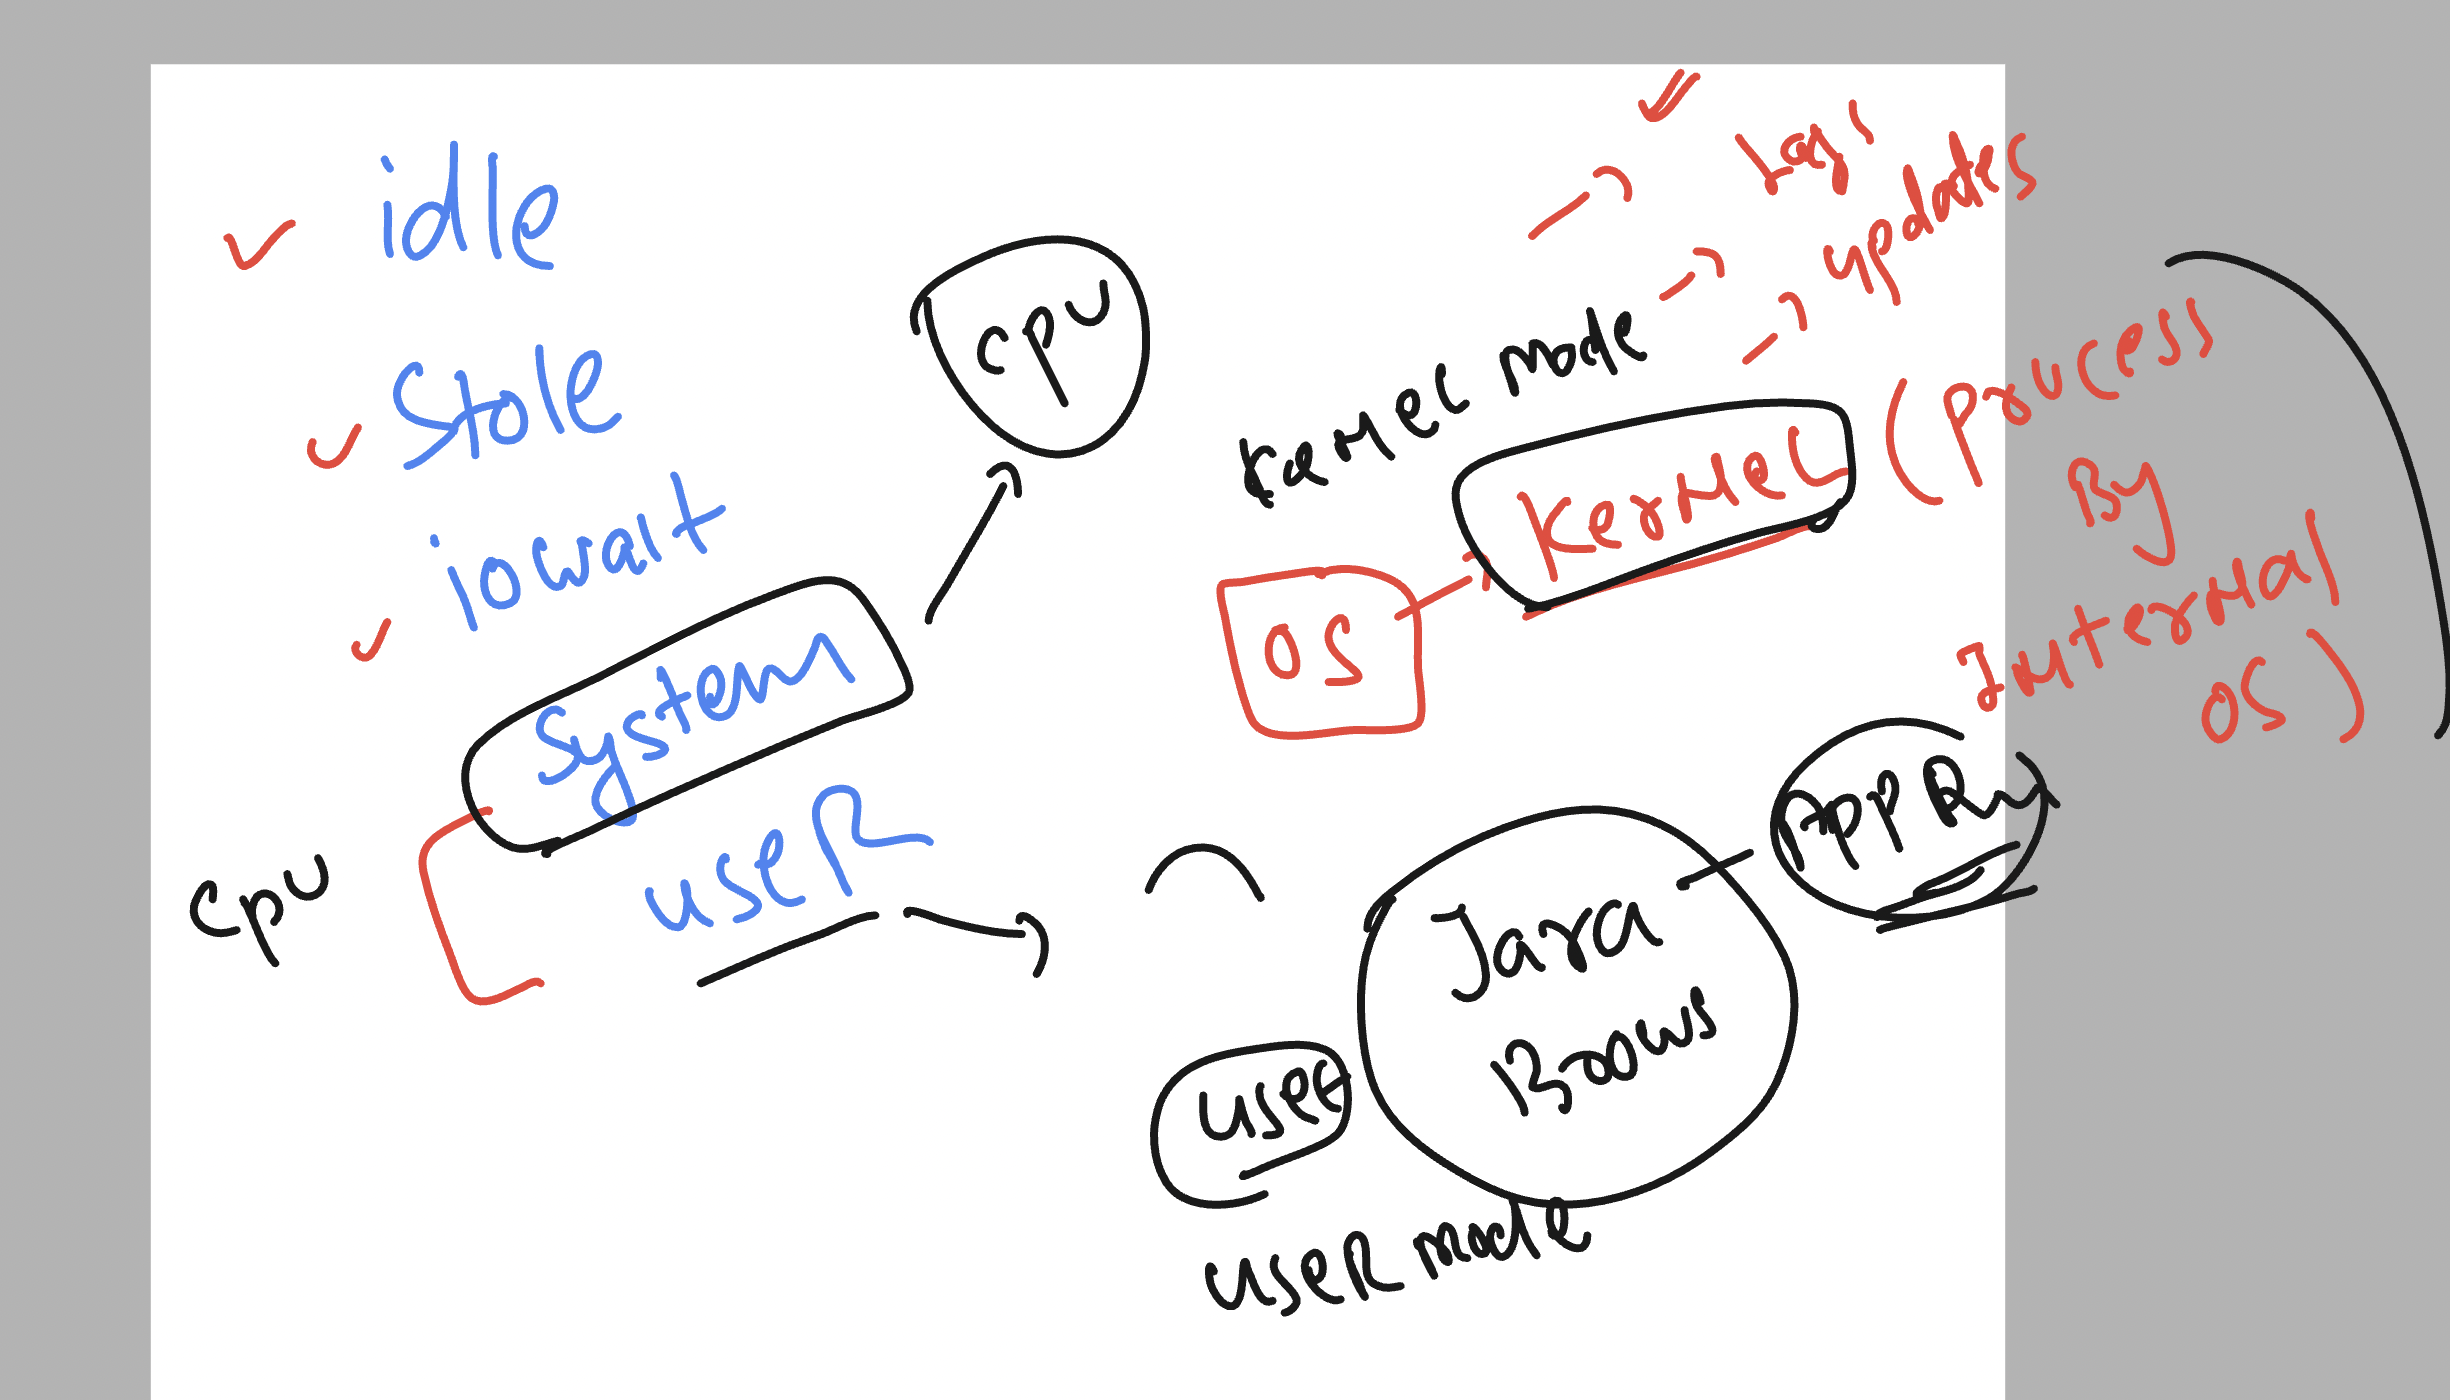 idle
Stole
iowait
System
USER
CPU
CPU
Kernel mode
Logs
updates
Kernel
(Process
By
Internal
OS)
OS
Java
Brows
User
USER mode